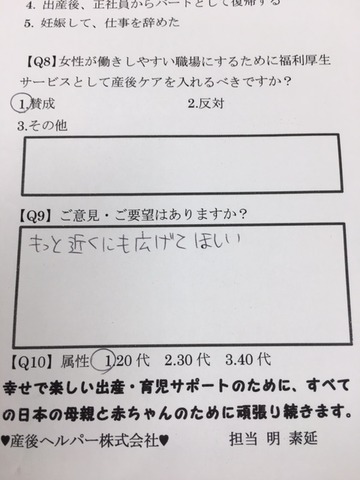 4. 出産後、正社員からパートとして復帰する
5. 妊娠して、仕事を辞めた
【Q8】女性が働きしやすい職場にするために福利厚生
サービスとして産後ケアを入れるべきですか？
1.賛成 2.反対
3.その他
【Q9】ご意見・ご要望はありますか？
もっと近くにも広げてほしい
【Q10】属性 1.20代 2.30代 3.40代
幸せで楽しい出産・育児サポートのために、すべて
の日本の母親と赤ちゃんのために頑張り続きます。
♥産後ヘルパー株式会社♥ 担当 明 素延